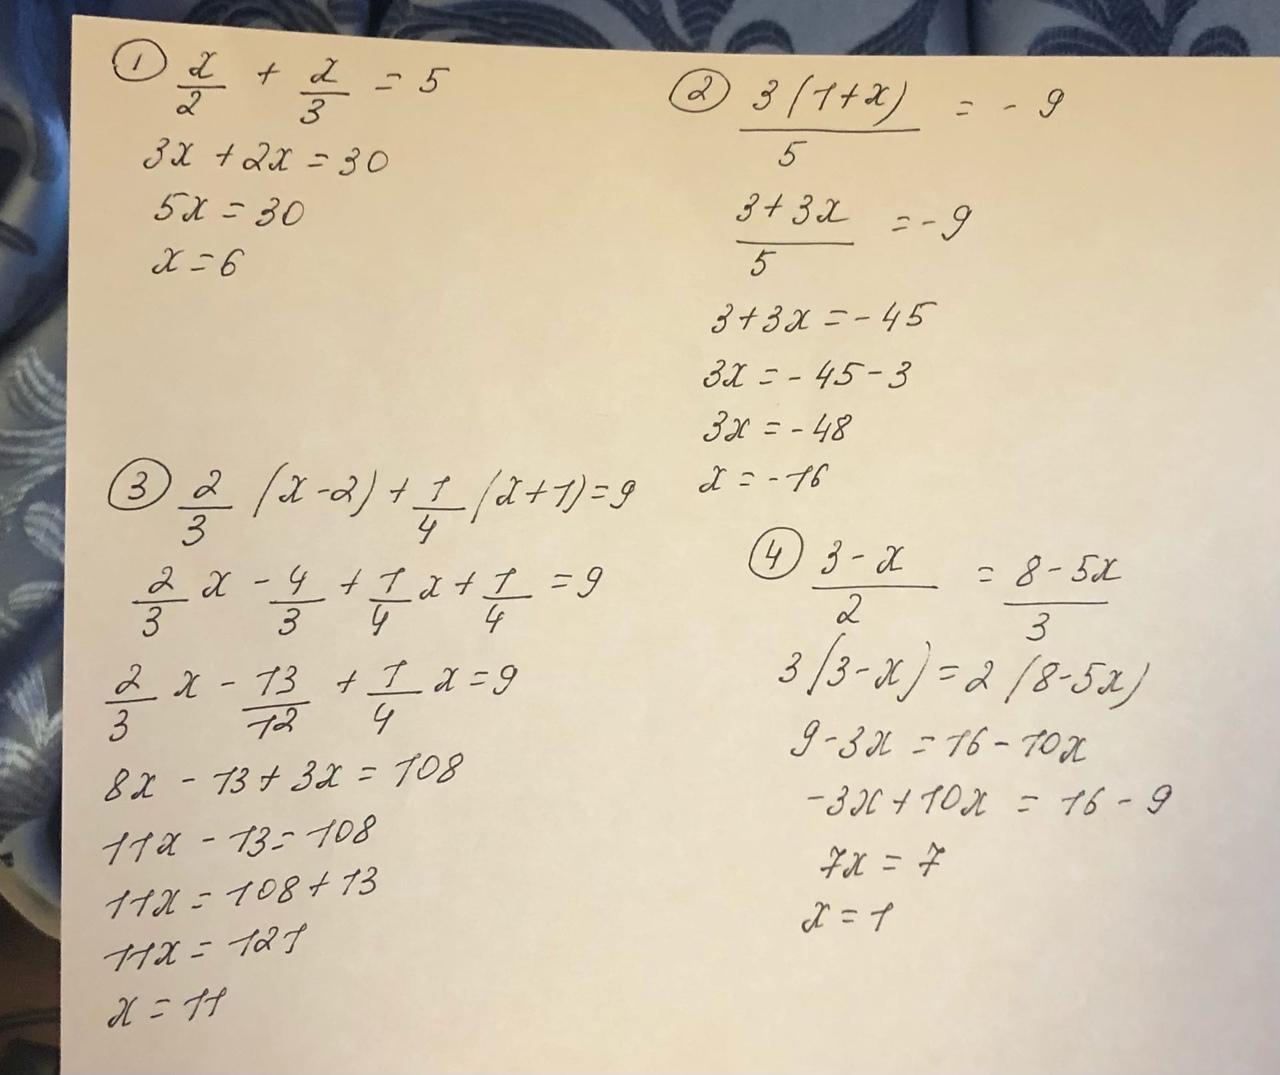 ① x/2 + x/3 = 5
3x + 2x = 30
5x = 30
x = 6
② 3(1+x)/5 = - 9
3+3x/5 = - 9
3+3x = - 45
3x = - 45 - 3
3x = - 48
x = - 16
③ 2/3 (x-2) + 1/4 (x+1) = 9
2/3 x - 4/3 + 1/4 x + 1/4 = 9
2/3 x - 13/12 + 1/4 x = 9
8x - 13 + 3x = 108
11x - 13 = 108
11x = 108 + 13
11x = 121
x = 11
④ 3-x/2 = 8-5x/3
3(3-x) = 2(8-5x)
9-3x = 16 - 10x
-3x + 10x = 16 - 9
7x = 7
x = 1